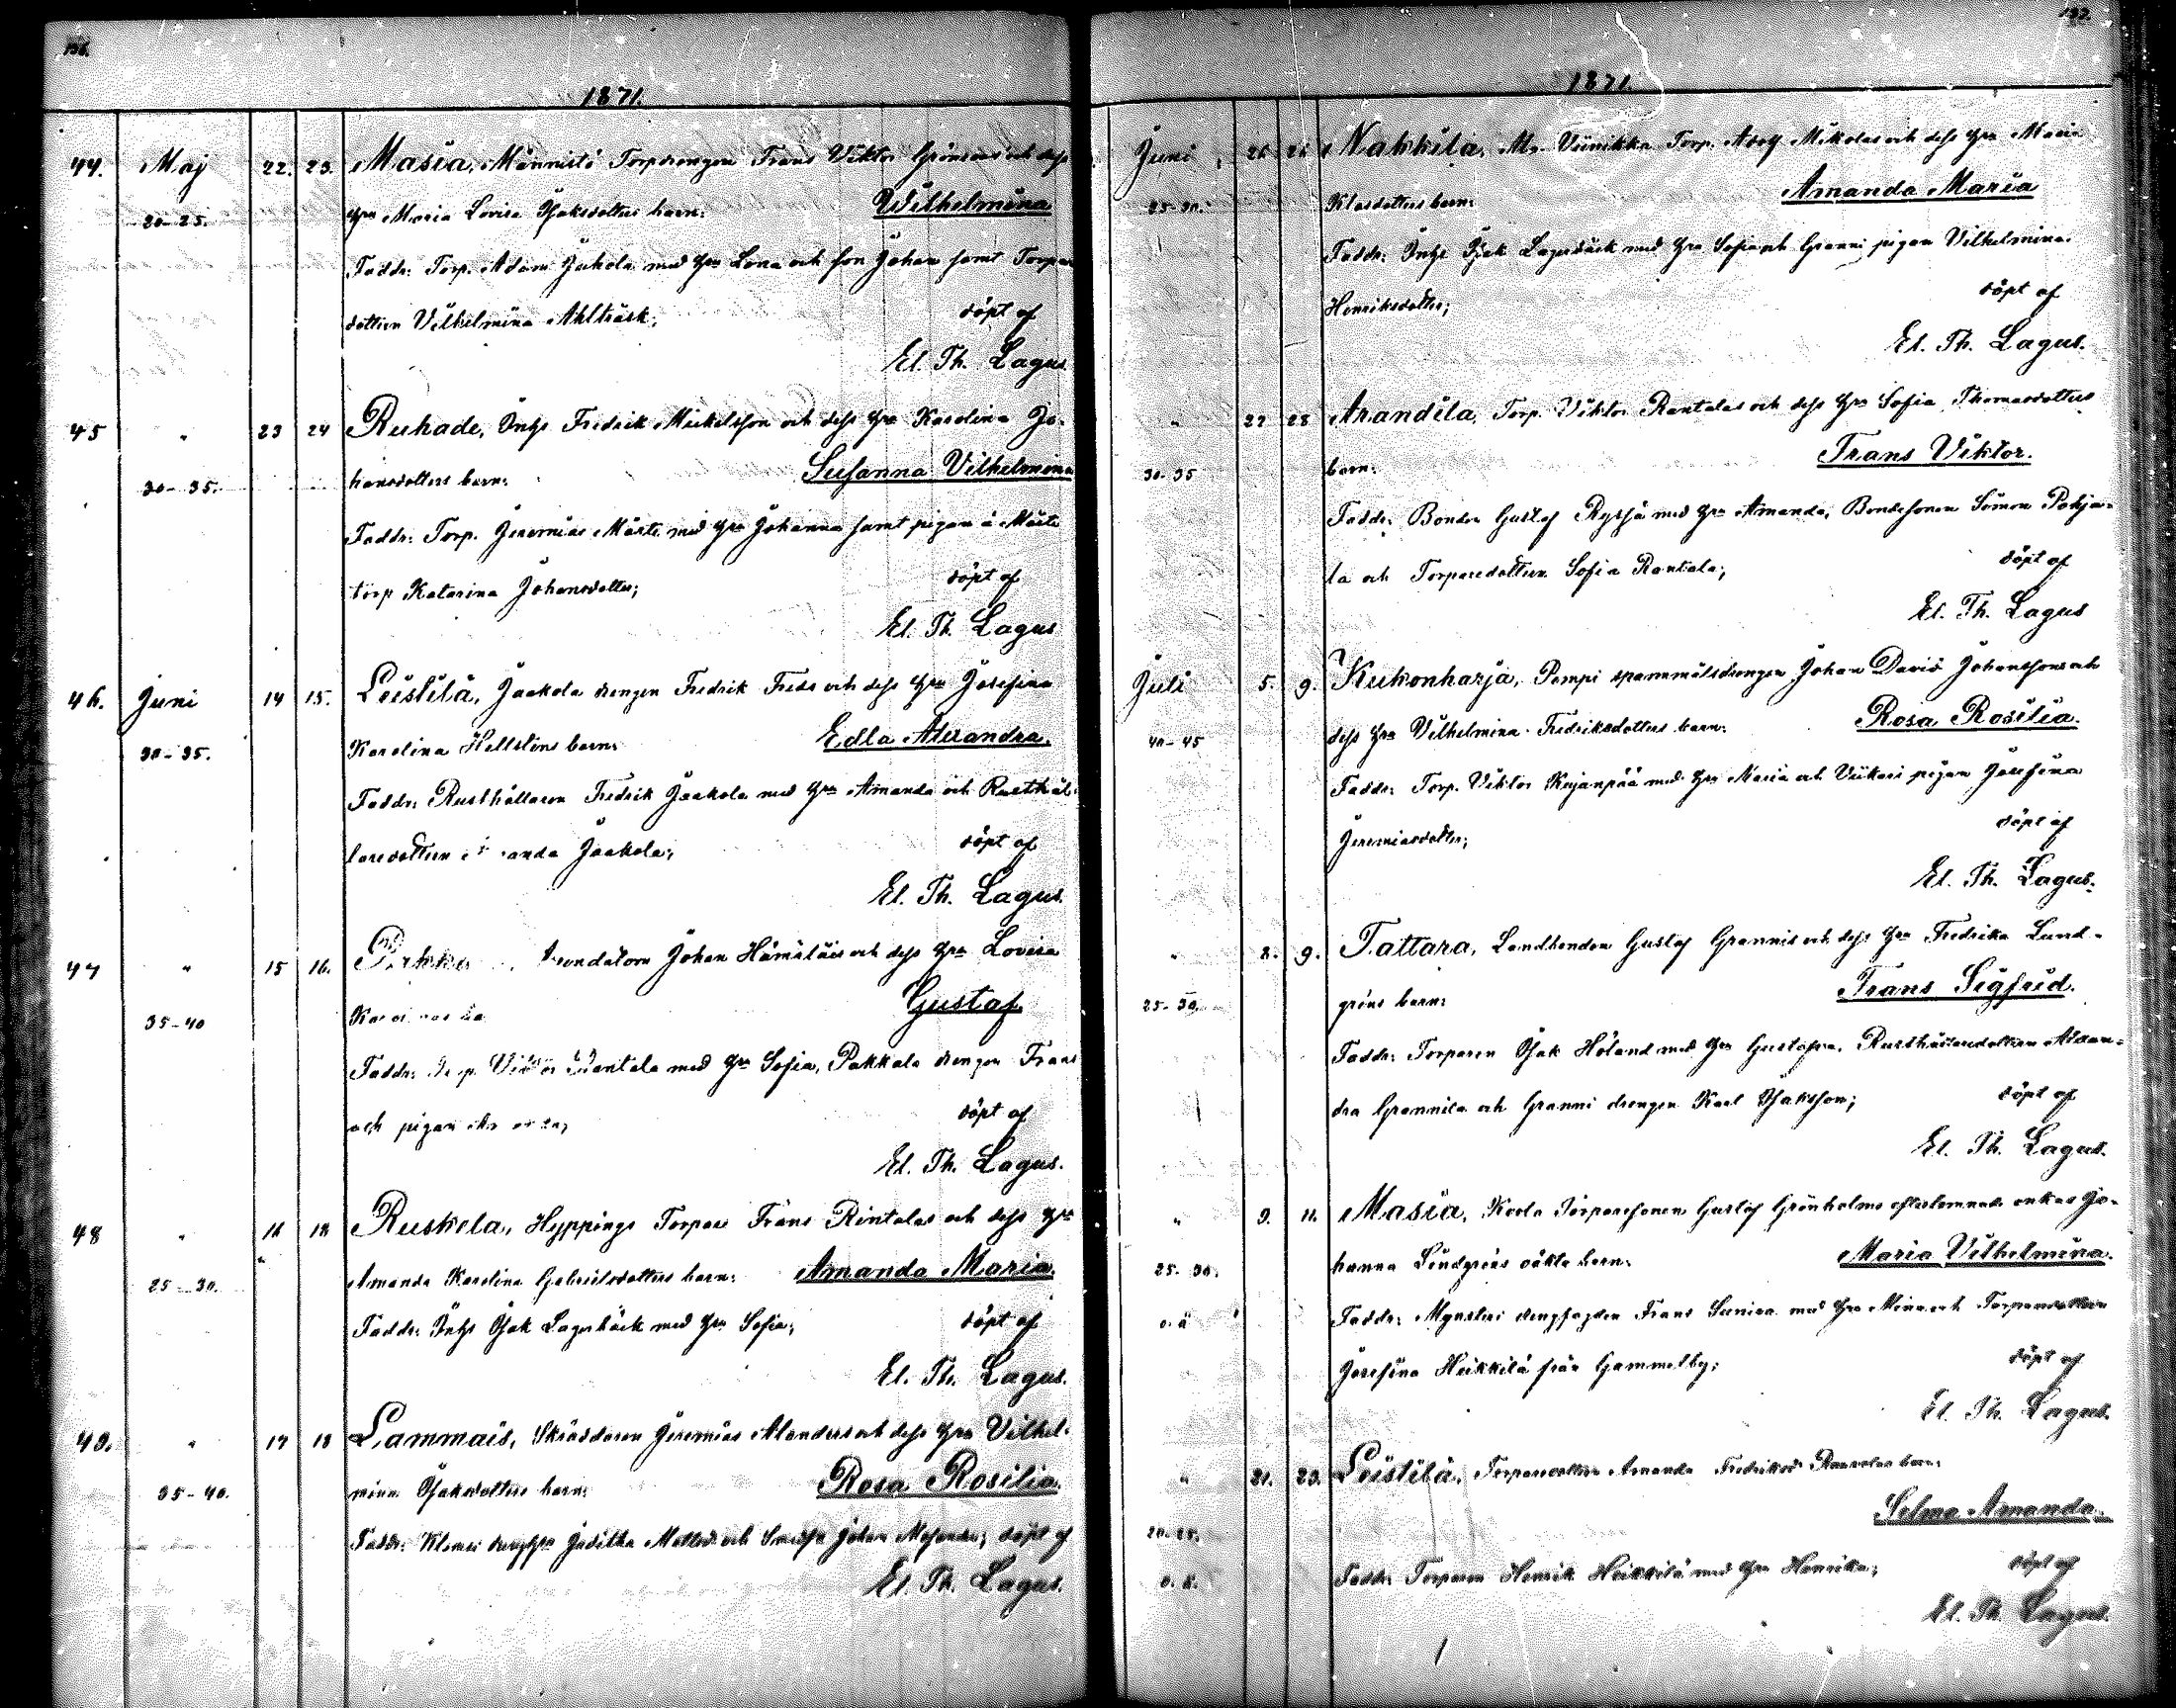 136.
1871.
44. Maj 22. 23. Masia, Männistö Torpdrengen Frans Viktor Grönroos och dess
20-25. hru Maria Lovisa Isaksdotters barn: Wilhelmina
Faddr: Torp. Adam Jukola med hru Lena och son Johan samt Torpare
dottren Vilhelmina Ahlträsk; döpt af
El. Th. Lagus.
45 " 23 24 Ruhade, Inhs Fredrik Mickelsson och dess hru Karolina Jo-
30-35. hansdotters barn: Susanna Vilhelmina
Faddr: Torp. Jeremias Märte med hru Johanna samt pigan å Märte
torp Katarina Johansdotter; döpt af
El. Th. Lagus
46. Juni 14 15. Leistilä, Jaakola drengen Fredrik Freds och dess hru Josefina
30-35. Karolina Hellsténs barn: Edla Alexandra.
Faddr: Rusthållaren Fredrik Jaakola med hru Amanda och Rusthål-
laredottren Jaakola; döpt af
El. Th. Lagus.
47 " 15 16. Johan Hämäläis och dess hru Lovisa
35-40 Gustaf.
Faddr: Rantala med hru Sofia, Pakkala drengen Frans
och pigan döpt af
El. Th. Lagus.
48 " 16 18 Ruskela, Hyppings Torpare Frans Rintalas och dess hru
25-30. Amanda Karolina Gabrielsdotters barn: Amanda Maria.
Faddr: Inhs Isak Lagerbäck med hru Sofia; döpt af
El. Th. Lagus.
49. " 17 18 Lammais, Skräddaren Jeremias Alanders och dess hru Vilhel-
35-40. mina Isaksdotters barn: Rosa Rosilia.
Faddr: Juditha Matsd. och Johan döpt af
El. Th. Lagus.
137.
1871.
Juni 26 26 Nakkila, Viinikka Torp. Adolf Mikolas och dess hru Maria
25-30. Klasdotters barn: Amanda Maria
Faddr: Inhs Isak Lagerbäck med hru Sofia och Granni pigan Vilhelmina
Henriksdotter; döpt af
El. Th. Lagus.
" 27 28 Arandila, Torp. Viktor Rantalas och dess hru Sofia Thomasdotters
30-35 barn: Frans Viktor.
Faddr: Bonden Gustaf Ryssjä med hru Amanda, Bondesonen Simon Pohja-
la och Torparedottren Sofia Rantala; döpt af
El. Th. Lagus
Juli 5. 9. Kukonharja, Pompi spannmålsdrengen Johan David Johanssons och
40-45 dess hru Vilhelmina Fredriksdotters barn: Rosa Rosilia.
Faddr: Torp. Viktor Kujanpää med hru Maria och Viikari pigan Josefina
Jeremiasdotter; döpt af
El. Th. Lagus.
" 8. 9. Tattara, Landbonden Gustaf Grannis och dess hru Fredrika Lund-
25-30. gréns barn: Frans Sigfrid.
Faddr: Torparen Isak Höland med hru Gustafva, Rusthållaredottren Alexan-
dra Grannila och Granni drengen Karl Isaksson; döpt af
El. Th. Lagus.
" 9. 11. Masia, Koola Torparesonen Gustaf Grönholms efterlemnade enkas Jo-
25-30. hanna Lindgréns oäkta barn: Maria Vilhelmina.
o. ä Faddr: Frans med hru Mina och Torparedottren
Josefina Heikkilä från Gammelby; döpt af
El. Th. Lagus.
" 21. 23. Leistilä, Torparedottren Amanda Fredriksd. barn:
20-25. Selma Amanda.
o. ä. Faddr: Torparen Henrik Heikkilä med hru Henrika; döpt af
El. Th. Lagus.